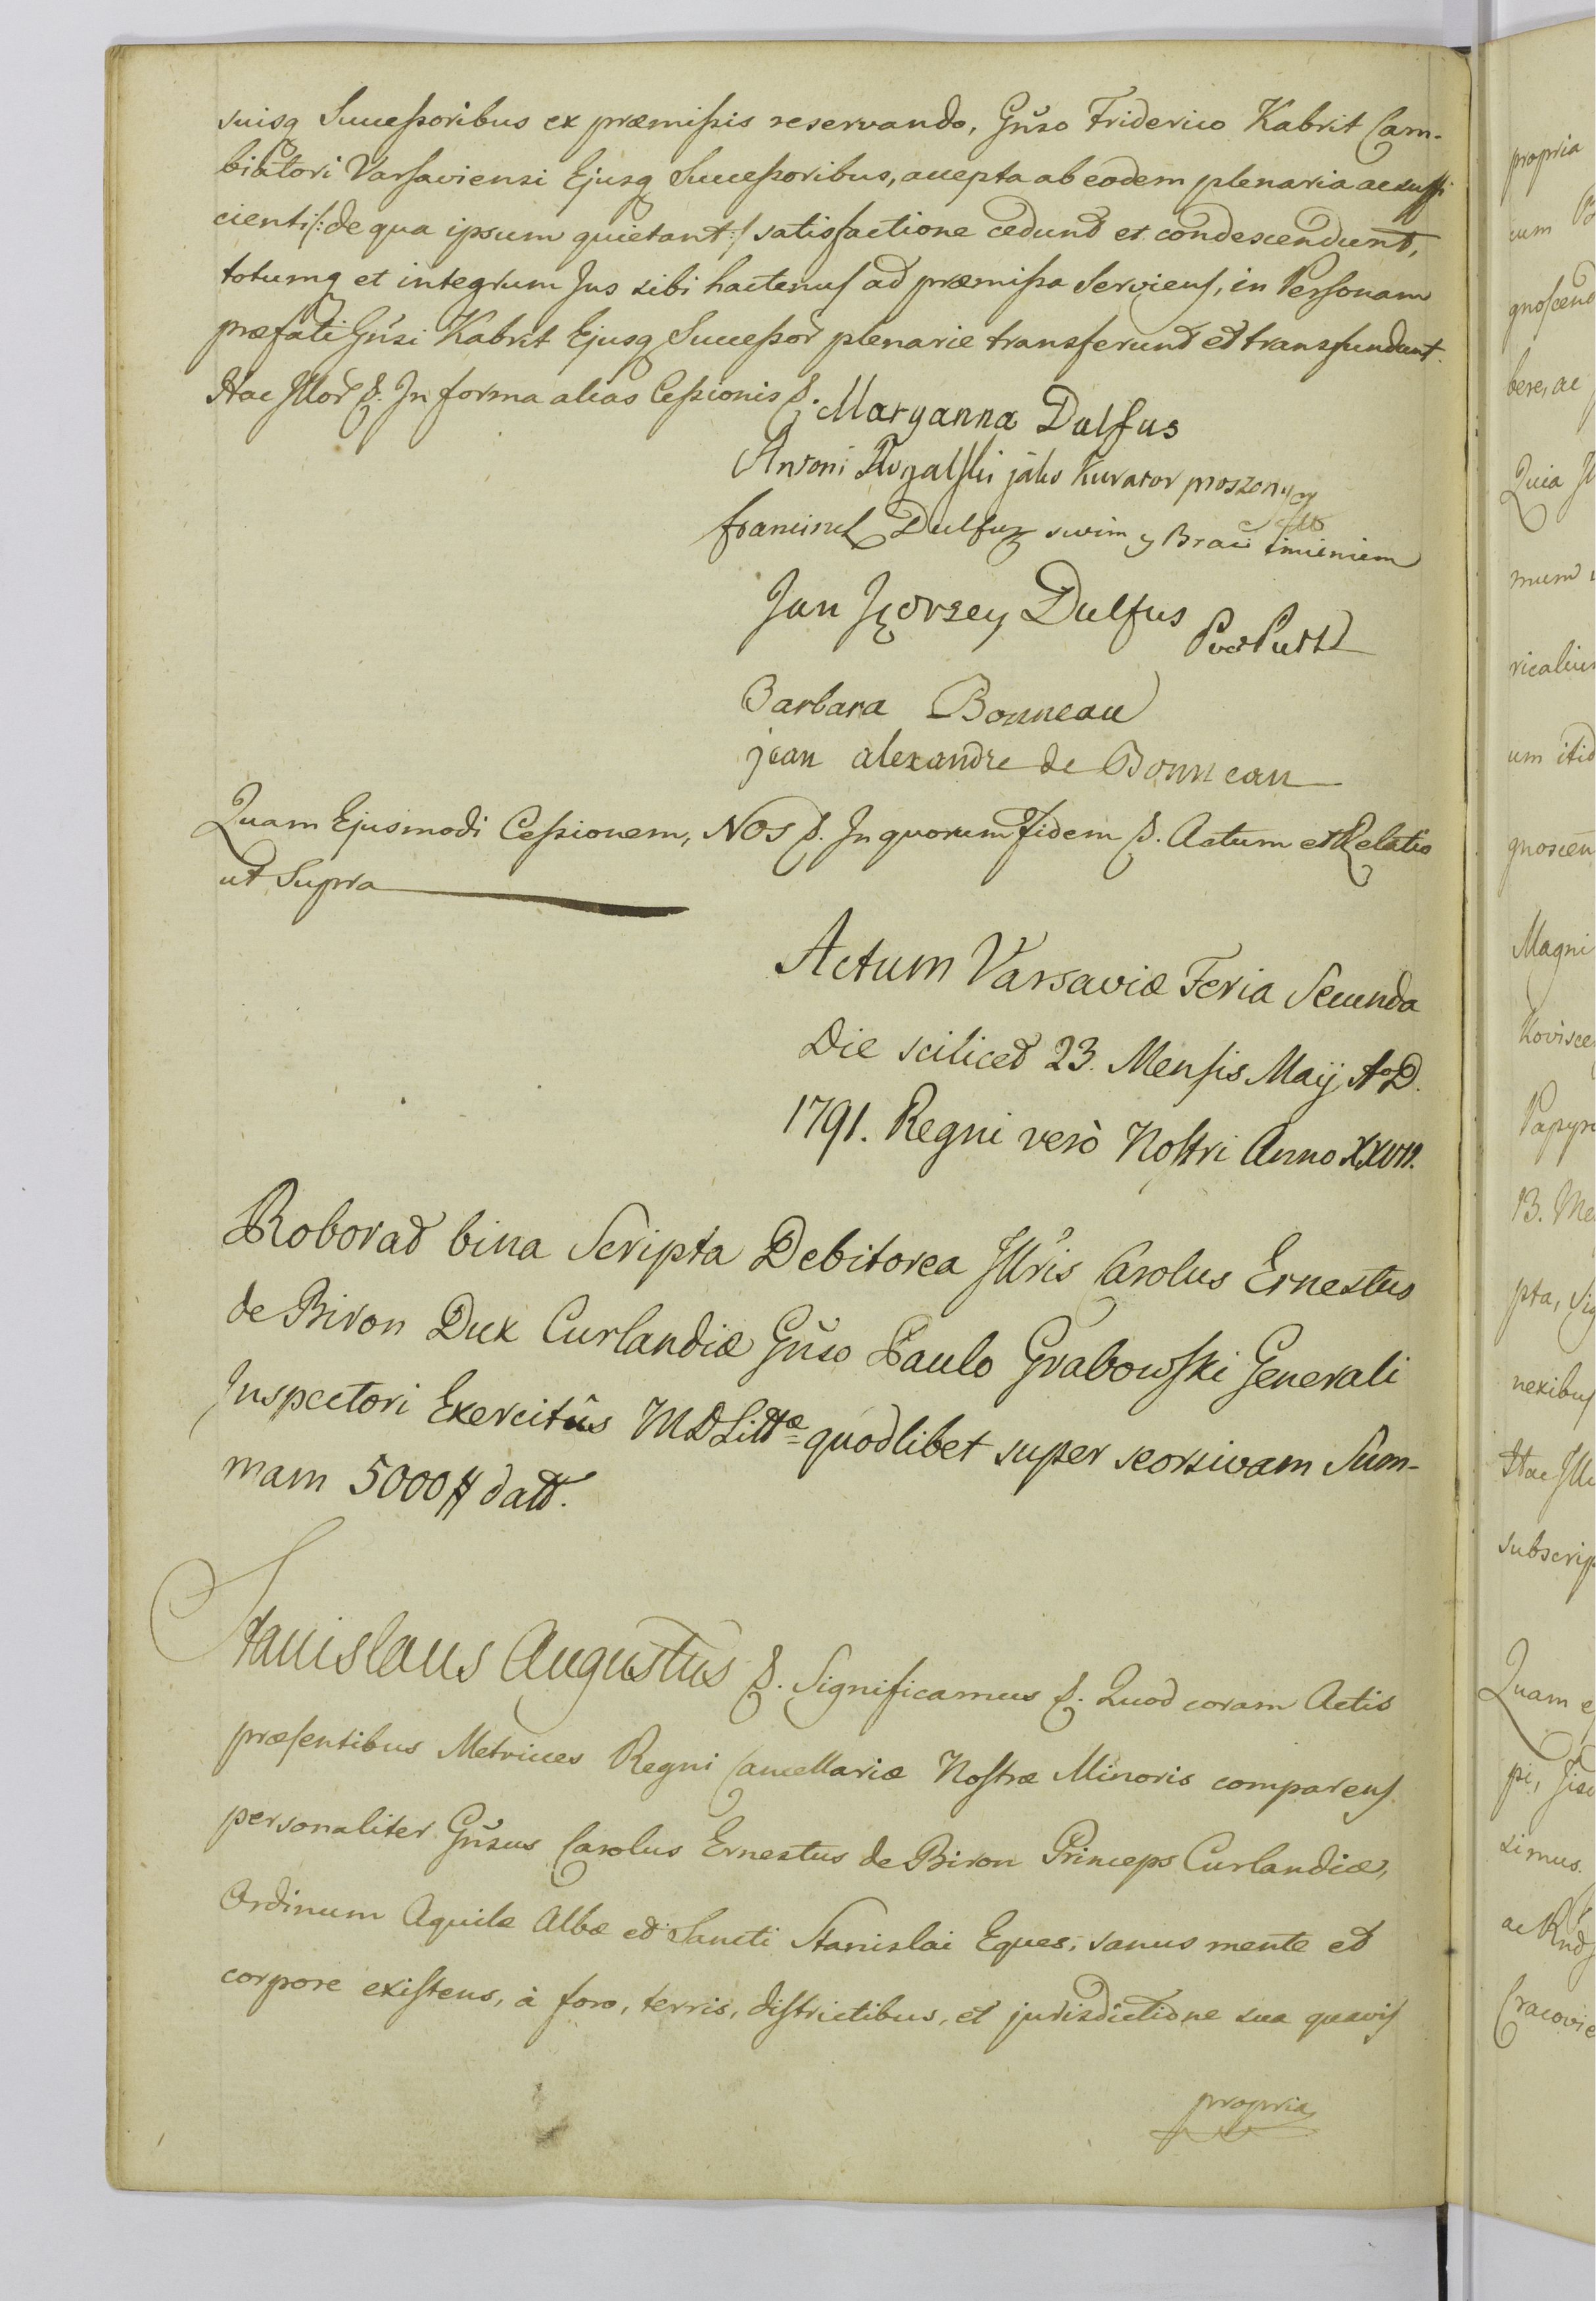 suisq Successoribus ex præmissis reservando, Gñso Friderico Kabrit Cam-
biatori Varsaviensi Ejusq Successoribus, accepta ab eodem plenaria ac suffi
cienti /: de qua ipsum quietant :/ satisfactione cedunt et condescendunt,
totumq et integrum Jus sibi hactenus ad præmissa Serviens, in Personam
præfati Gñsi Kabrit Ejusq Successor plenarie transferunt et transfundunt.
Hac Illor &. In forma alias Cessionis &.
Maryanna Dulfus
Antoni Rogalski jako Kurator proszony
francisek Dulfus swim y Braci imieniem
Jan Jędrzey Dulfus
Barbara Bonneau
jean alexandre de Bonneau
Quam Ejusmodi Cessionem, Nos &. In quorum fidem &. Actum et Relatio
ut Supra
Actum Varsaviæ Feria Secunda
Die scilicet 23. Mensis Maij AoD.
1791. Regni verò Nostri Anno XXVII.
Roborat bina Scripta Debitorea Illris Carolus Ernestus
de Biron Dux Curlandiæ Gñso Paulo Grabowski Generali
Inspectori Exercitûs MDLittæ quodlibet super seorsivam Sum-
mam 5000 # datt.
Stanislaus Augustus &. Significamus &. Quod coram Actis
præsentibus Metrices Regni Cancellariæ Nostræ Minoris comparens
personaliter Gñsus Carolus Ernestus de Biron Princeps Curlandiæ,
Ordinum Aquilæ Albæ et Sancti Stanislai Eques, sanus mente et
corpore existens, à foro, terris, districtibus, et jurisdictione sua quavis
propria
propria
cum
gnoscend
bere, ac
Quia
mum
ricaliu
um itid
gnoscen
Magni
Kovisce
Papyr
13. Me
pta, Sig
nexibus
Hac Ill
subscrip
Quam e
pi,
simus.
Cracovie